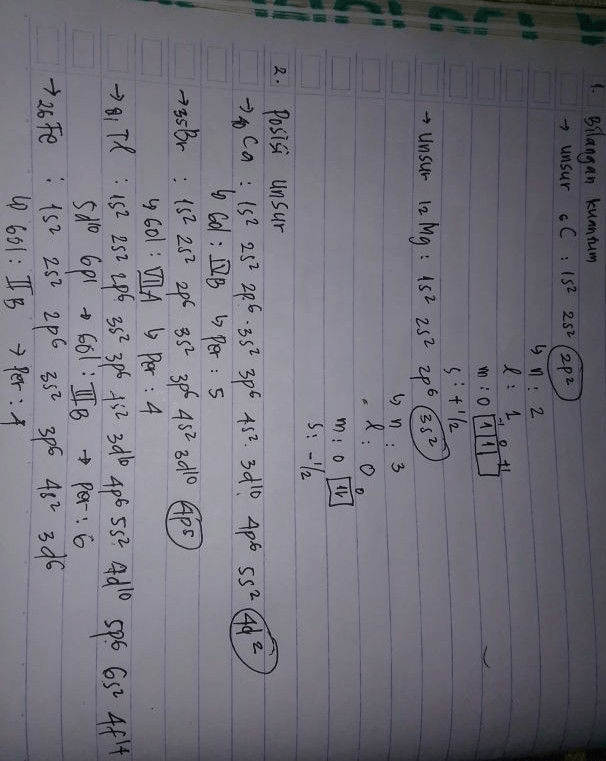 1. Bilangan kuantum
→ Unsur ₆C : 1s² 2s² 2p²
↳ n : 2
l : 1
-1 0 +1
m : 0 1 1
s : +1/2
→ Unsur ₁₂Mg : 1s² 2s² 2p⁶ 3s²
↳ n : 3
l : 0
0
m : 0 1↓
s : -1/2
2. Posisi Unsur
→ ₄₀Ca : 1s² 2s² 2p⁶ 3s² 3p⁶ 4s² 3d¹⁰ 4p⁶ 5s² 4d²
↳ Gol : IVB ↳ Per : 5
→ ₃₅Br : 1s² 2s² 2p⁶ 3s² 3p⁶ 4s² 3d¹⁰ 4p⁵
↳ Gol : VIIA ↳ Per : 4
→ ₈₁Tl : 1s² 2s² 2p⁶ 3s² 3p⁶ 4s² 3d¹⁰ 4p⁶ 5s² 4d¹⁰ 5p⁶ 6s² 4f¹⁴
5d¹⁰ 6p¹ → Gol : IIIB → Per : 6
→ ₂₆Fe : 1s² 2s² 2p⁶ 3s² 3p⁶ 4s² 3d⁶
↳ Gol : IIB → Per : 4